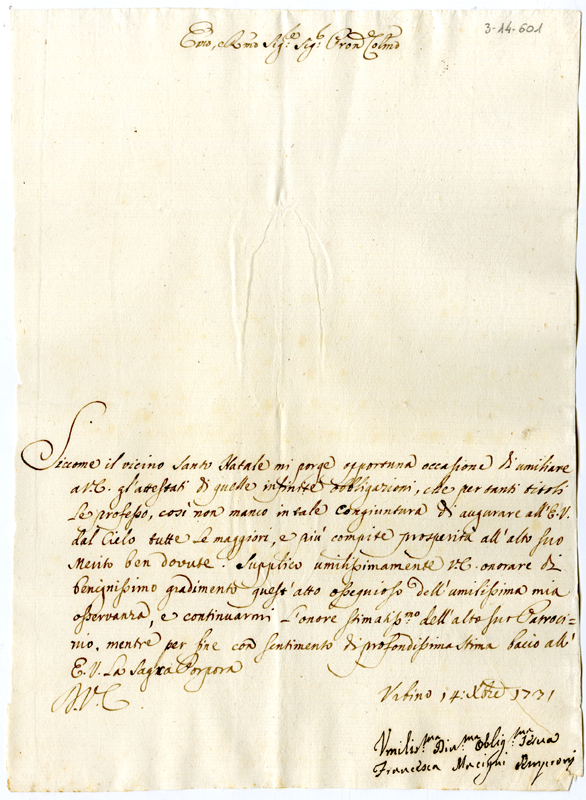 3-14-601
Emo, e Rmo Sig.re Sig.r Pron Colmo
Siccome il vicino Santo Natale mi porge opportuna occasione di umiliare
a V.E. gl'attestati di quelle infinite obbligazioni, che per tanti titoli
Le professo, così non manco in tale congiuntura di augurare all'E.V.
dal Cielo tutte le maggiori, e più compite prosperità all'alto suo
Merito ben dovute. Supplico umilissimamente V.E. onorare di
benignissimo gradimento quest'atto ossequioso dell'umilissima mia
osservanza, e continuarmi l'onore stimatiss.mo dell'alto suo Patroci-
nio, mentre per fine con sentimento di profondissima stima bacio all'
E.V. La Sagra Porpora
D.V.E.
Urbino 14: Xbre 1731
Umiliss.ma Div.ma Oblig.ma Serva
Francesca